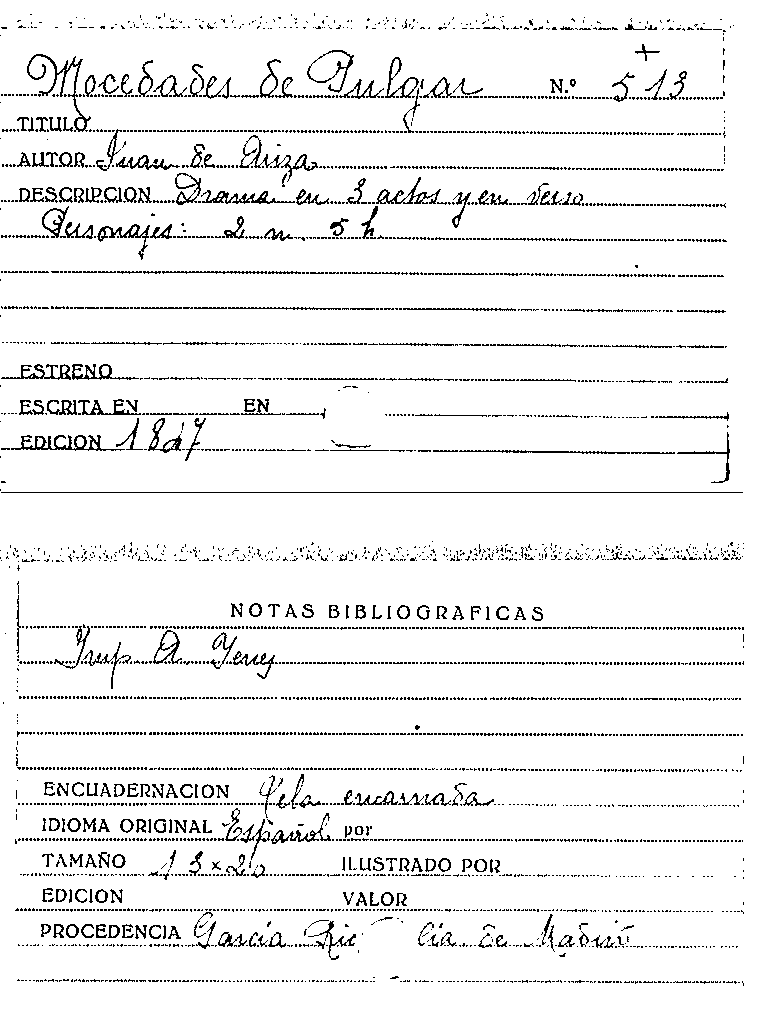 +
Mocedades de Pulgar N.º 513
TITULO
AUTOR Juan de Ariza
DESCRIPCION Drama en 3 actos y en verso
Personajes: 2 m. 5 h.
ESTRENO
ESCRITA EN EN
EDICION 1847
NOTAS BIBLIOGRAFICAS
Imp A Yenes
ENCUADERNACION Tela encarnada
IDIOMA ORIGINAL Español por
TAMAÑO 13 x 20 ILUSTRADO POR
EDICION VALOR
PROCEDENCIA García Ric Cia. de Madrid